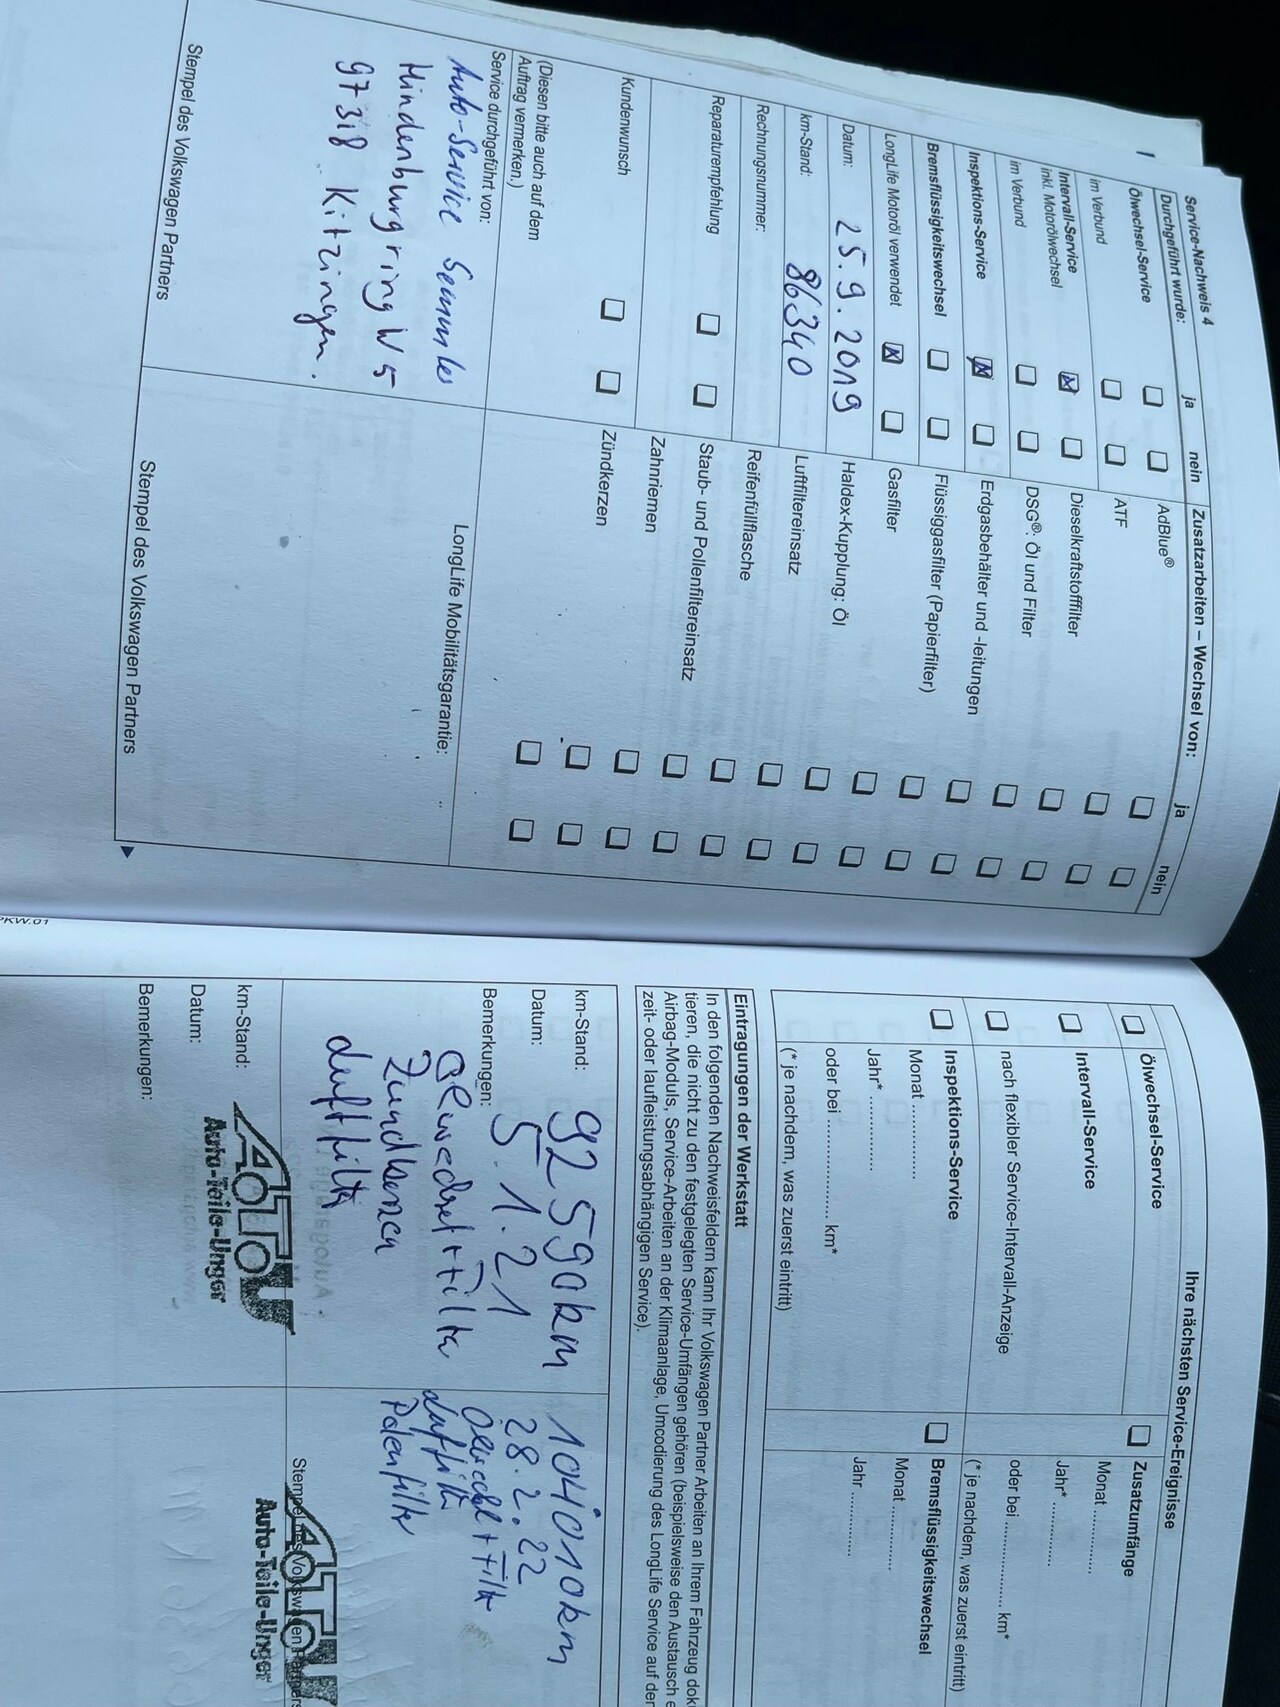 Service-Nachweis 4
Durchgeführt wurde: ja nein
Ölwechsel-Service
im Verbund
Intervall-Service
inkl. Motorölwechsel
im Verbund
Inspektions-Service
Bremsflüssigkeitswechsel
LongLife Motoröl verwendet
Datum: 25.9.2019
km-Stand: 86340
Rechnungsnummer:
Reparaturempfehlung
Kundenwunsch
(Diesen bitte auch auf dem
Auftrag vermerken.)
Service durchgeführt von:
Auto-Service
Hindenburgring W 5
97318 Kitzingen.
Stempel des Volkswagen Partners
Zusatzarbeiten – Wechsel von: ja nein
AdBlue®
ATF
Dieselkraftstofffilter
DSG®: Öl und Filter
Erdgasbehälter und -leitungen
Flüssiggasfilter (Papierfilter)
Gasfilter
Haldex-Kupplung: Öl
Luftfiltereinsatz
Reifenfüllflasche
Staub- und Pollenfiltereinsatz
Zahnriemen
Zündkerzen
LongLife Mobilitätsgarantie:
Stempel des Volkswagen Partners
PKW.01
Ihre nächsten Service-Ereignisse
Ölwechsel-Service
Intervall-Service
nach flexibler Service-Intervall-Anzeige
Inspektions-Service
Monat ...............
Jahr* ...............
oder bei .................... km*
(* je nachdem, was zuerst eintritt)
Zusatzumfänge
Monat ...............
Jahr* ...............
oder bei .................... km*
(* je nachdem, was zuerst eintritt)
Bremsflüssigkeitswechsel
Monat ...............
Jahr ...............
Eintragungen der Werkstatt
In den folgenden Nachweisfeldern kann Ihr Volkswagen Partner Arbeiten an Ihrem Fahrzeug dok
tieren, die nicht zu den festgelegten Service-Umfängen gehören (beispielsweise den Austausch e
Airbag-Moduls, Service-Arbeiten an der Klimaanlage, Umcodierung des LongLife Service auf der
zeit- oder laufleistungsabhängigen Service).
km-Stand: 92590km
Datum: 5.1.21
Bemerkungen: Ölwechsel + Filter
Zündkerzen
Luftfilter
ATU
Auto-Teile-Unger
104010km
28.2.22
Ölwechsel + Filter
Luftfilter
Polenfilter
Stempel des Volkswagen Partners
ATU
Auto-Teile-Unger
km-Stand:
Datum:
Bemerkungen: